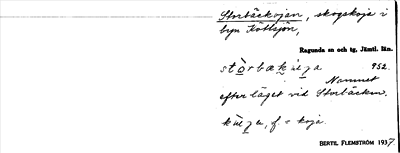 Storbäckojan, skogskoja i
byn Köttsjön,
Ragunda sn och tg, Jämtl. län.
952.
Namnet
efter läget vid Storbäcken.
f = koja.
BERTIL FLEMSTRÖM 1937.